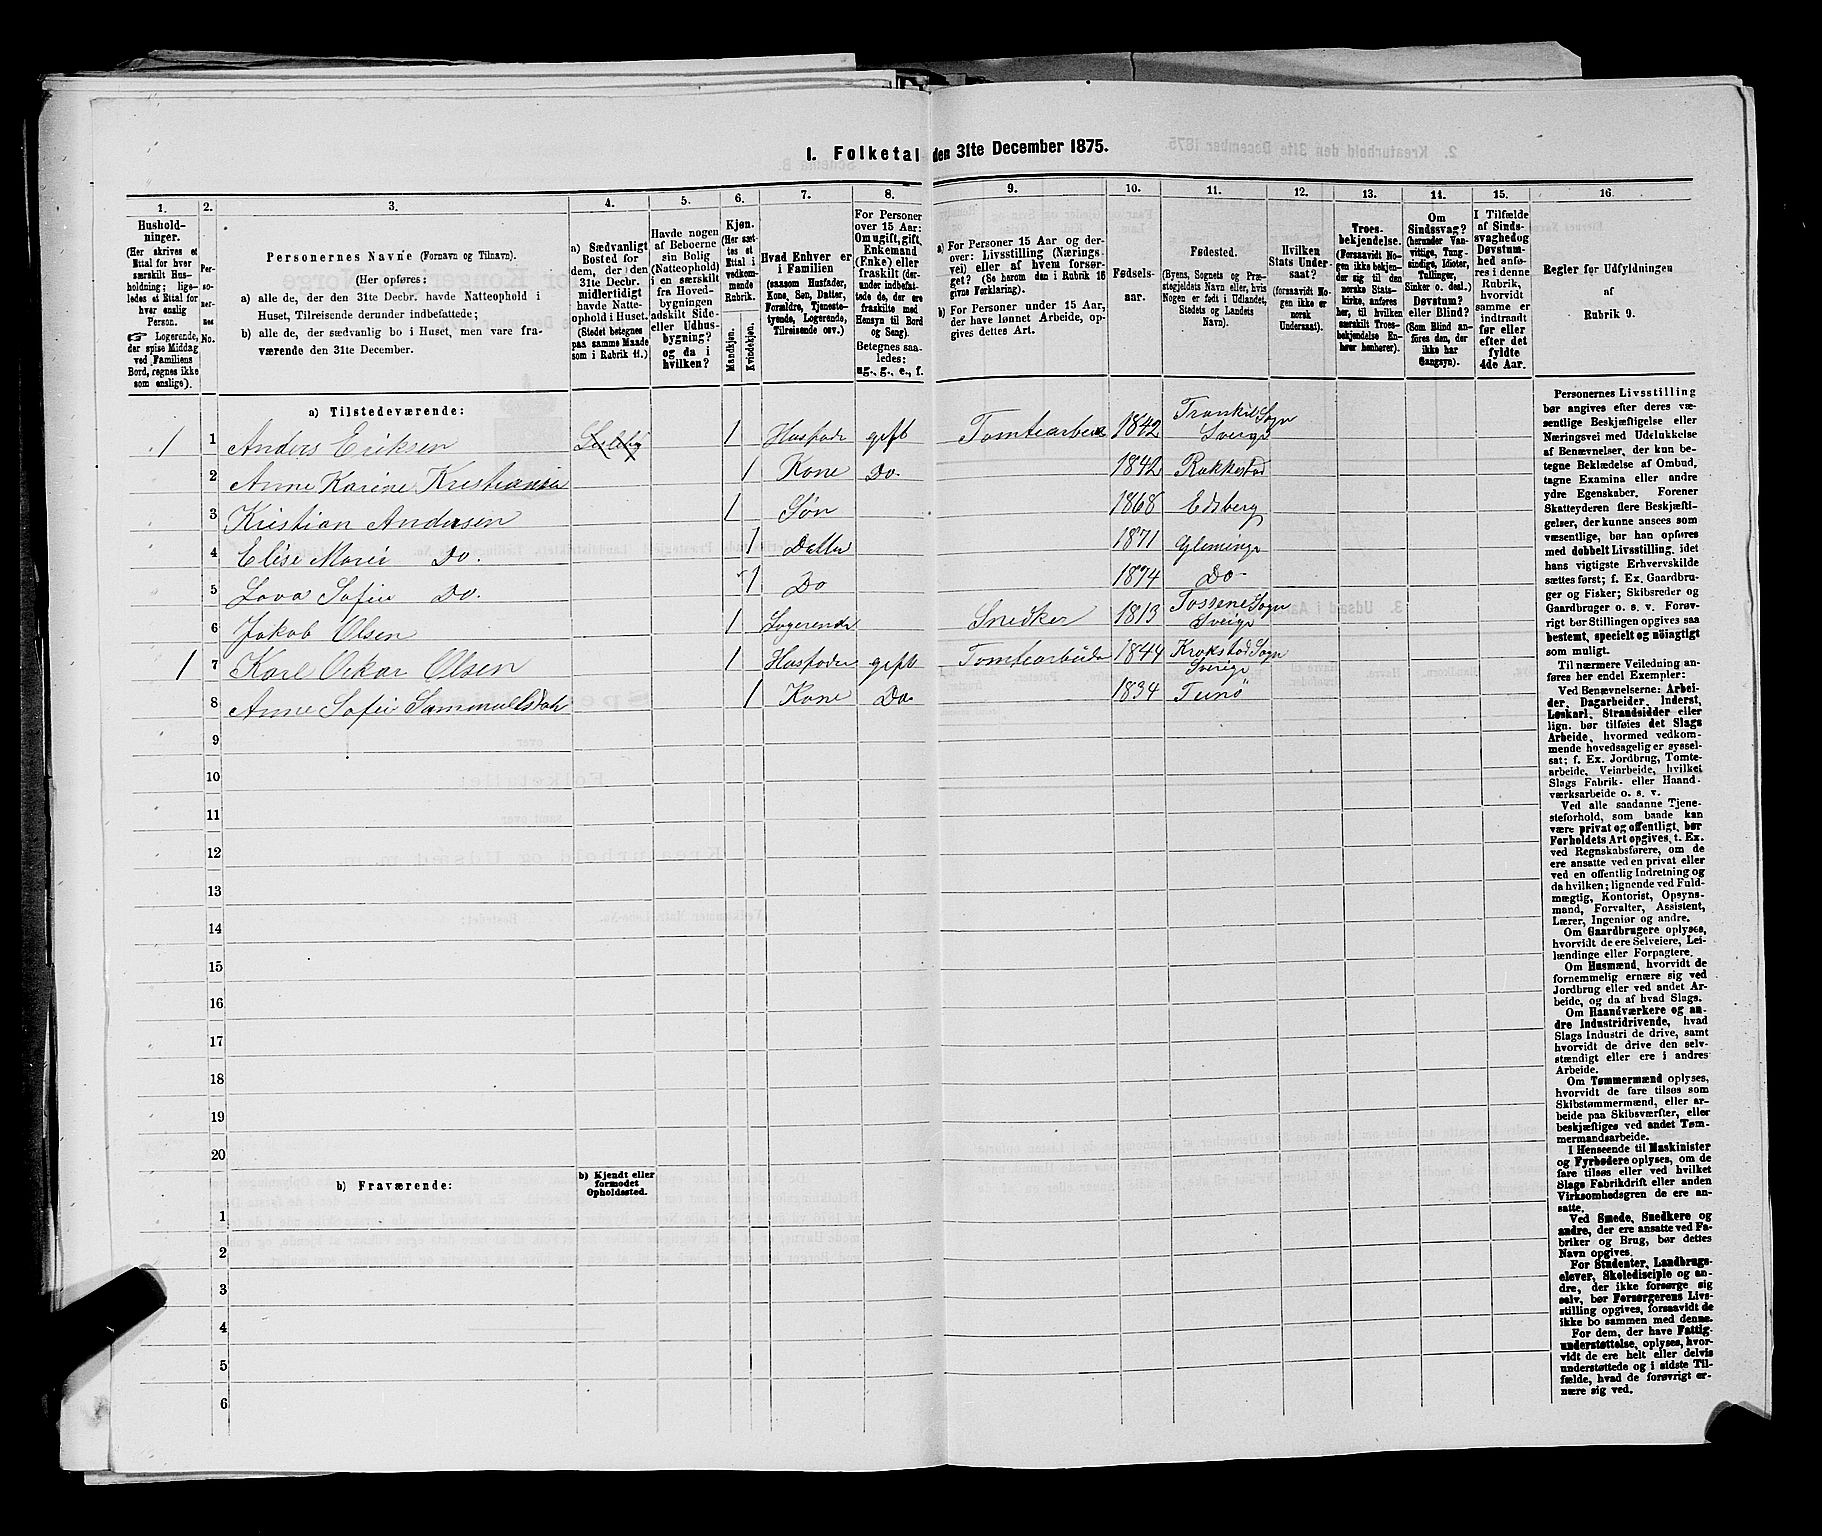 I. Folketal den 31te December 1875.
1.
2.
3.
4.
5.
6.
7.
8.
9.
10.
11.
12.
13.
14.
15.
16.
Hushold-
ninger.
(Her skrives et
Ettal for hver
særskilt Hus-
holdning; lige-
ledes et Ettal for
hver enslig
Person.
☞ Logerende,
der spise Middag
ved Familiens
Bord, regnes ikke
som enslige).
Per-
so-
ner-
nes
No.
Personernes Navne (Fornavn og Tilnavn).
(Her opføres:
a) alle de, der den 31te Decbr. havde Natteophold i
Huset, Tilreisende derunder indbefattede;
b) alle de, der sædvanlig bo i Huset, men vare fra-
værende den 31te December.
a) Sædvanligt
Bosted for
dem, der den
31te Decbr.
midlertidigt
havde Natte-
ophold i Huset.
(Stedet betegnes
paa samme Maade
som i Rubrik 11.)
Havde nogen
af Beboerne
sin Bolig
(Natteophold)
i en særskilt
fra Hoved-
bygningen
adskilt Side-
eller Udhus-
bygning?
og da i
hvilken?
Kjøn.
(Her sæt-
tes et
Ettal i
vedkom-
mende
Rubrik.
Mandkjøn.
Kvindekjøn.
Hvad Enhver er
i Familien
(saasom Husfader,
Kone, Søn, Datter,
Forældre, Tjeneste-
tyende, Logerende,
Tilreisende osv.)
For Personer
over 15 Aar:
Om ugift, gift,
Enkemand
(Enke) eller
fraskilt (der-
under indbefat-
tede de, der ere
fraskilte med
Hensyn til Bord
og Seng).
Betegnes saa-
ledes:
ug., g., e., f.
a) For Personer 15 Aar og der-
over: Livsstilling (Nærings-
vei) eller af hvem forsør-
get? (Se herom den i Rubrik 16
givne Forklaring).
b) For Personer under 15 Aar,
der have lønnet Arbeide, op-
gives dettes Art.
Fødsels-
aar.
Fødested.
(Byens, Sognets og Præ-
stegjeldets Navn eller, hvis
Nogen er født i Udlandet,
Stedets og Landets
Navn).
Hvilken
Stats Under-
saat?
(forsaavidt No-
gen ikke er
norsk
Undersaat).
Troes-
bekjendelse.
(Forsaavidt No-
gen ikke bekjen-
der sig til den
norske Stats-
kirke, anføres
her, til hvilken
særskilt Troes-
bekjendelse En-
hver henhører).
Om
Sindssvag?
(herunder Van-
vittige, Tung-
sindige, Idioter,
Tullinger,
Sinker o. desl.)
Døvstum?
eller Blind?
(Som Blind an-
føres den, der
ikke har
Gangsyn).
I Tilfælde
af Sinds-
svaghed og
Døvstum-
hed anfø-
res i denne
Rubrik,
hvorvidt
samme er
indtraadt
før eller
efter det
fyldte
4de Aar.
Regler for Udfyldningen
af
Rubrik 9.
a) Tilstedeværende:
1 1 Anders Eriksen 1 Husfader gift Tomtearbeide 1842 Trankil Sogn Sverige
2 Anne Karine Kristiansen 1 Kone Do. 1842 Rakkestad
3 Kristian Andersen 1 Søn 1868 Edsberg
4 Elise Marie Do. 1 Datter 1871 Glemminge
5 Lova Sofie Do. 1 Do 1874 Do
6 Jakob Olsen 1 Logerende Snedker 1813 Tossene Sogn Sverige
1 7 Karl Oskar Olsen 1 Husfader gift Tomtearbeide 1844 Krokstad Sogn Sverige
8 Anne Sofie Sammuelsdatr 1 Kone Do 1834 Tunø
9
10
11
12
13
14
15
16
17
18
19
20
b) Fraværende:
b) Kjendt eller
formodet
Opholdssted.
1
2
3
4
5
6
Personernes Livsstilling
bør angives efter deres væ-
sentlige Beskjæftigelse eller
Næringsvei med Udelukkelse
af Benævnelser, der kun be-
tegne Beklædelse af Ombud,
tagne Examina eller andre
ydre Egenskaber. Forener
Skatteyderen flere Beskjæfti-
gelser, der kunne ansees som
væsentlige, bør han opføres
med dobbelt Livsstilling, idet
hans vigtigste Erhvervskilde
sættes først; f. Ex. Gaardbru-
ger og Fisker; Skibsreder og
Gaardbruger o. s. v. Forøv-
rigt bør Stillingen opgives saa
bestemt, specielt og nøiagtigt
som muligt.
Til nærmere Veiledning an-
føres her endel Exempler:
Ved Benævnelserne: Arbei-
der, Dagarbeider, Inderst,
Løskarl, Strandsidder eller
lign. bør tilføies det Slags
Arbeide, hvormed vedkom-
mende hovedsagelig er syssel-
sat; f. Ex. Jordbrug, Tomte-
arbeide, Veiarbeide, hvilket
Slags Fabrik- eller Haand-
værksarbeide o. s. v.
Ved alle saadanne Tjene-
steforhold, som baade kan
være privat og offentligt, bør
Forholdets Art opgives, t. Ex.
ved Regnskabsførere, om de
ere ansatte ved en privat eller
ved en offentlig Indretning og
da hvilken; lignende ved Fuld-
mægtig, Kontorist, Opsyns-
mand, Forvalter, Assistent,
Lærer, Ingeniør og andre.
Om Gaardbrugere oplyses,
hvorvidt de ere Selveiere, Lei-
lændinge eller Forpagtere.
Om Husmænd, hvorvidt de
fornemmelig ernære sig ved
Jordbrug eller ved andet Ar-
beide, og da af hvad Slags.
Om Haandværkere og an-
dre Industridrivende, hvad
Slags Industri de drive, samt
hvorvidt de drive den selv-
stændigt eller ere i andres
Arbeide.
Om Tømmermænd oplyses,
hvorvidt de fare tilsøs som
Skibstømmermænd, eller ar-
beide paa Skibsværfter, eller
beskjæftiges ved andet Tøm-
mermandsarbeide.
I Henseende til Maskinister
og Fyrbødere oplyses, om de
fare tilsøs eller ved hvilket
Slags Fabrikdrift eller anden
Virksomhedsgren de ere an-
satte.
Ved Smede, Snedkere og
andre, der ere ansatte ved Fa-
briker og Brug, bør dettes
Navn opgives.
For Studenter, Landbrugs-
elever, Skoledisciple og an-
dre, der ikke forsørge sig
selv, bør Forsørgerens Livs-
stilling opgives, forsaavidt de
ikke bo sammen med denne.
For dem, der have Fattig-
understøttelse, oplyses, hvor-
vidt de ere helt eller delvis
understøttede og i sidste Til-
fælde, hvad de forøvrigt er-
nære sig ved.